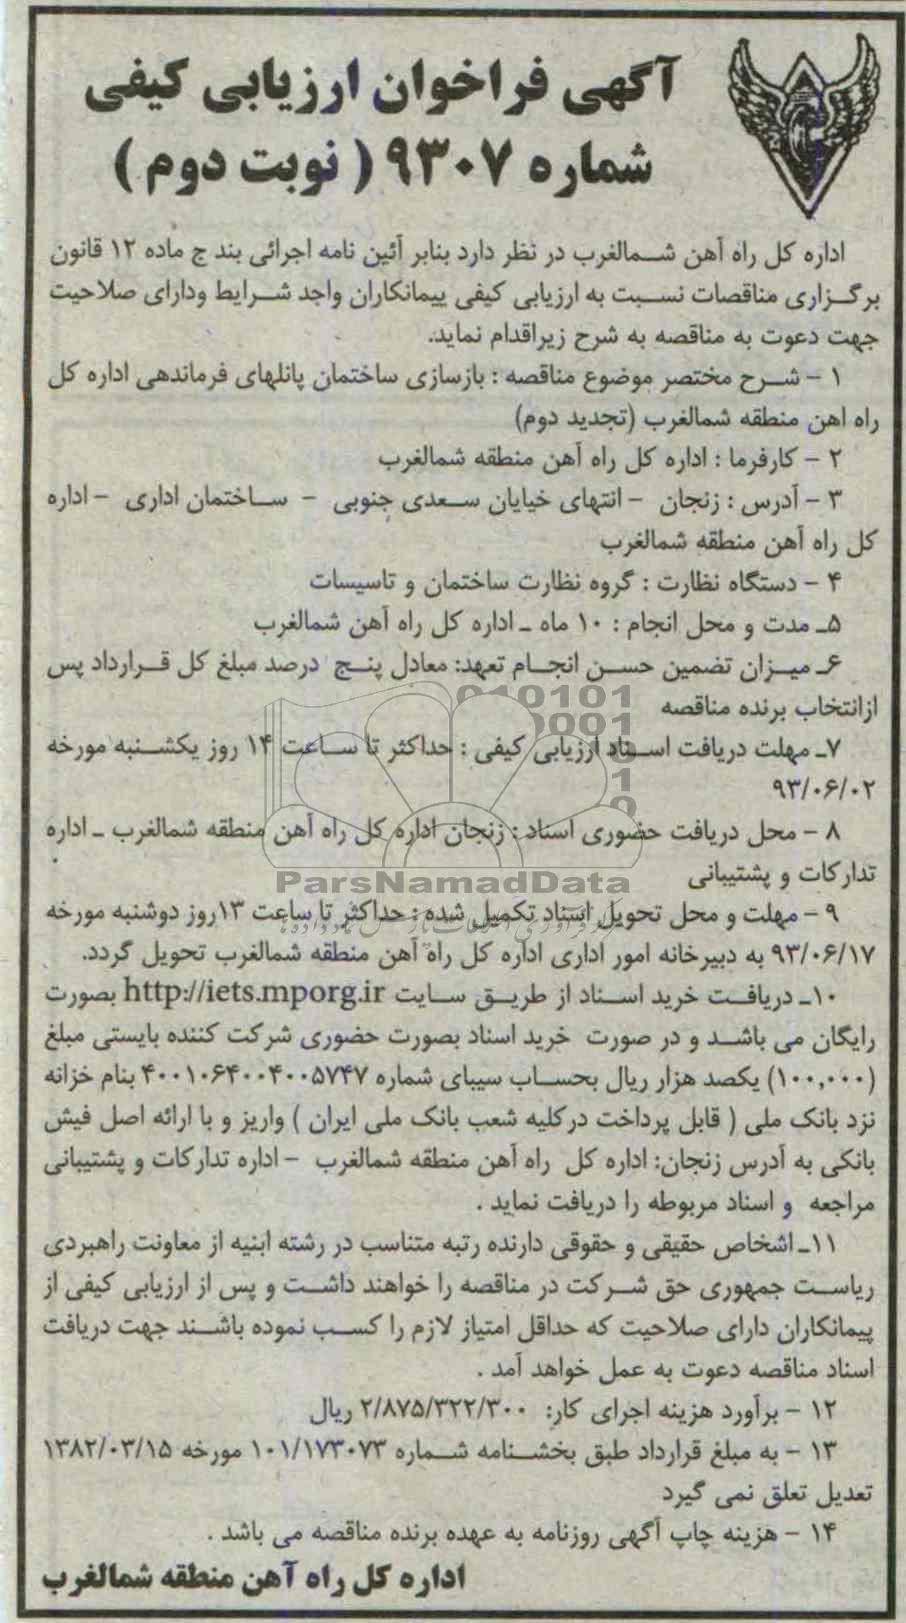 آگهی فراخوان ارزیابی کیفی
شماره ۹۳۰۷ ( نوبت دوم )
اداره کل راه آهن شمالغرب در نظر دارد بنابر آئین نامه اجرائی بند ج ماده ۱۲ قانون
برگزاری مناقصات نسبت به ارزیابی کیفی پیمانکاران واجد شرایط ودارای صلاحیت
جهت دعوت به مناقصه به شرح زیراقدام نماید.
۱ – شرح مختصر موضوع مناقصه : بازسازی ساختمان پانلهای فرماندهی اداره کل
راه اهن منطقه شمالغرب (تجدید دوم)
۲ – کارفرما : اداره کل راه آهن منطقه شمالغرب
۳ – آدرس : زنجان – انتهای خیایان سعدی جنوبی – ساختمان اداری – اداره
کل راه آهن منطقه شمالغرب
۴ – دستگاه نظارت : گروه نظارت ساختمان و تاسیسات
۵ـ مدت و محل انجام : ۱۰ ماه ـ اداره کل راه آهن شمالغرب
۶ـ میزان تضمین حسن انجام تعهد: معادل پنج درصد مبلغ کل قرارداد پس
ازانتخاب برنده مناقصه
010101
0001
۷ـ مهلت دریافت اسناد ارزیابی کیفی : حداکثر تا ساعت ۱۴ روز یکشنبه مورخه
۹۳/۰۶/۰۲
۸ – محل دریافت حضوری اسناد : زنجان اداره کل راه آهن منطقه شمالغرب ـ اداره
تدارکات و پشتیبانی
ParsNamadData
۹ – مهلت و محل تحویل اسناد تکمیل شده : حداکثر تا ساعت ۱۳روز دوشنبه مورخه
۹۳/۰۶/۱۷ به دبیرخانه امور اداری اداره کل راه آهن منطقه شمالغرب تحویل گردد.
۱۰ـ دریافت خرید اسناد از طریق سایت http://iets.mporg.ir بصورت
رایگان می باشد و در صورت خرید اسناد بصورت حضوری شرکت کننده بایستی مبلغ
(۱۰۰,۰۰۰) یکصد هزار ریال بحساب سیبای شماره ۴۰۰۱۰۶۴۰۰۴۰۰۵۷۴۷ بنام خزانه
نزد بانک ملی ( قابل پرداخت درکلیه شعب بانک ملی ایران ) واریز و با ارائه اصل فیش
بانکی به آدرس زنجان: اداره کل راه آهن منطقه شمالغرب – اداره تدارکات و پشتیبانی
مراجعه و اسناد مربوطه را دریافت نماید .
۱۱ـ اشخاص حقیقی و حقوقی دارنده رتبه متناسب در رشته ابنیه از معاونت راهبردی
ریاست جمهوری حق شرکت در مناقصه را خواهند داشت و پس از ارزیابی کیفی از
پیمانکاران دارای صلاحیت که حداقل امتیاز لازم را کسب نموده باشند جهت دریافت
اسناد مناقصه دعوت به عمل خواهد آمد .
۱۲ – برآورد هزینه اجرای کار: ۲/۸۷۵/۳۲۲/۳۰۰ ریال
۱۳ – به مبلغ قرارداد طبق بخشنامه شماره ۱۰۱/۱۷۳۰۷۳ مورخه ۱۳۸۲/۰۳/۱۵
تعدیل تعلق نمی گیرد
۱۴ – هزینه چاپ آگهی روزنامه به عهده برنده مناقصه می باشد .
اداره کل راه آهن منطقه شمالغرب